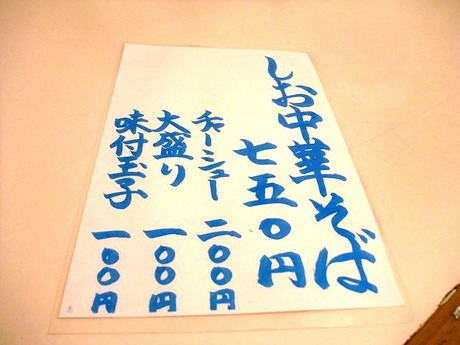 しお中華そば
七五〇円
チャーシュー 二〇〇円
大盛り 一〇〇円
味付玉子 一〇〇円